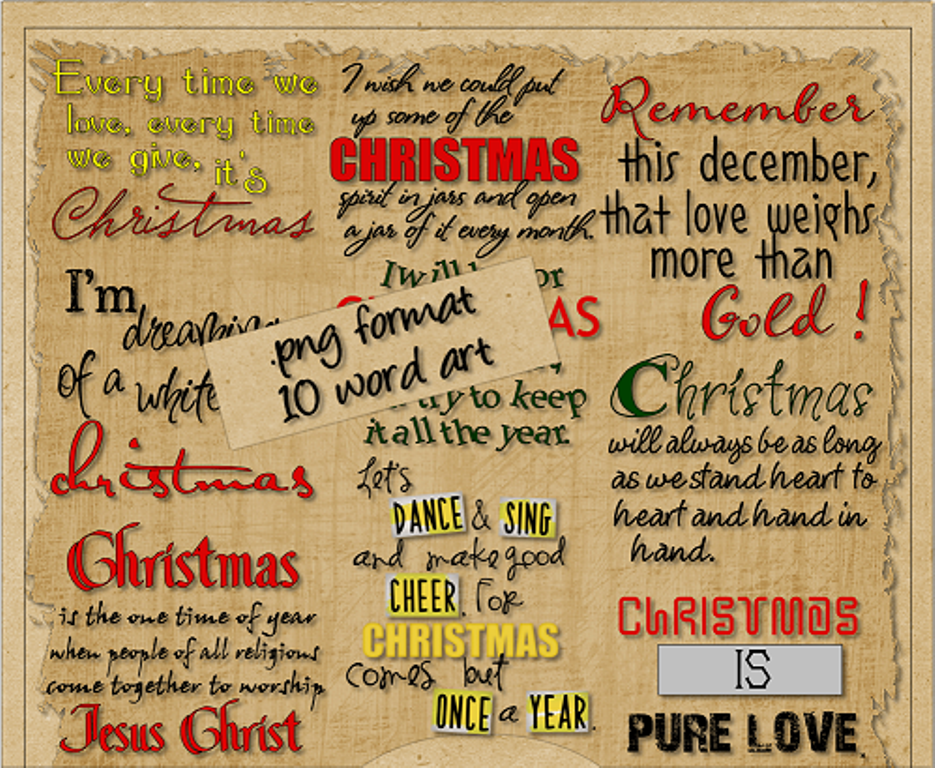 Every time we
love, every time
we give, it's
Christmas
I'm
dreaming
of a white
christmas
Christmas
is the one time of year
when people of all religious
come together to worship
Jesus Christ
I wish we could put
up some of the
CHRISTMAS
spirit in jars and open
a jar of it every month.
I will
AS
try to keep
it all the year.
.png format
10 word art
Let's
DANCE & SING
and make good
CHEER. For
CHRISTMAS
comes but
ONCE a YEAR.
Remember
this december,
that love weighs
more than
Gold !
Christmas
will always be as long
as we stand heart to
heart and hand in
hand.
CHRISTMAS
IS
PURE LOVE.